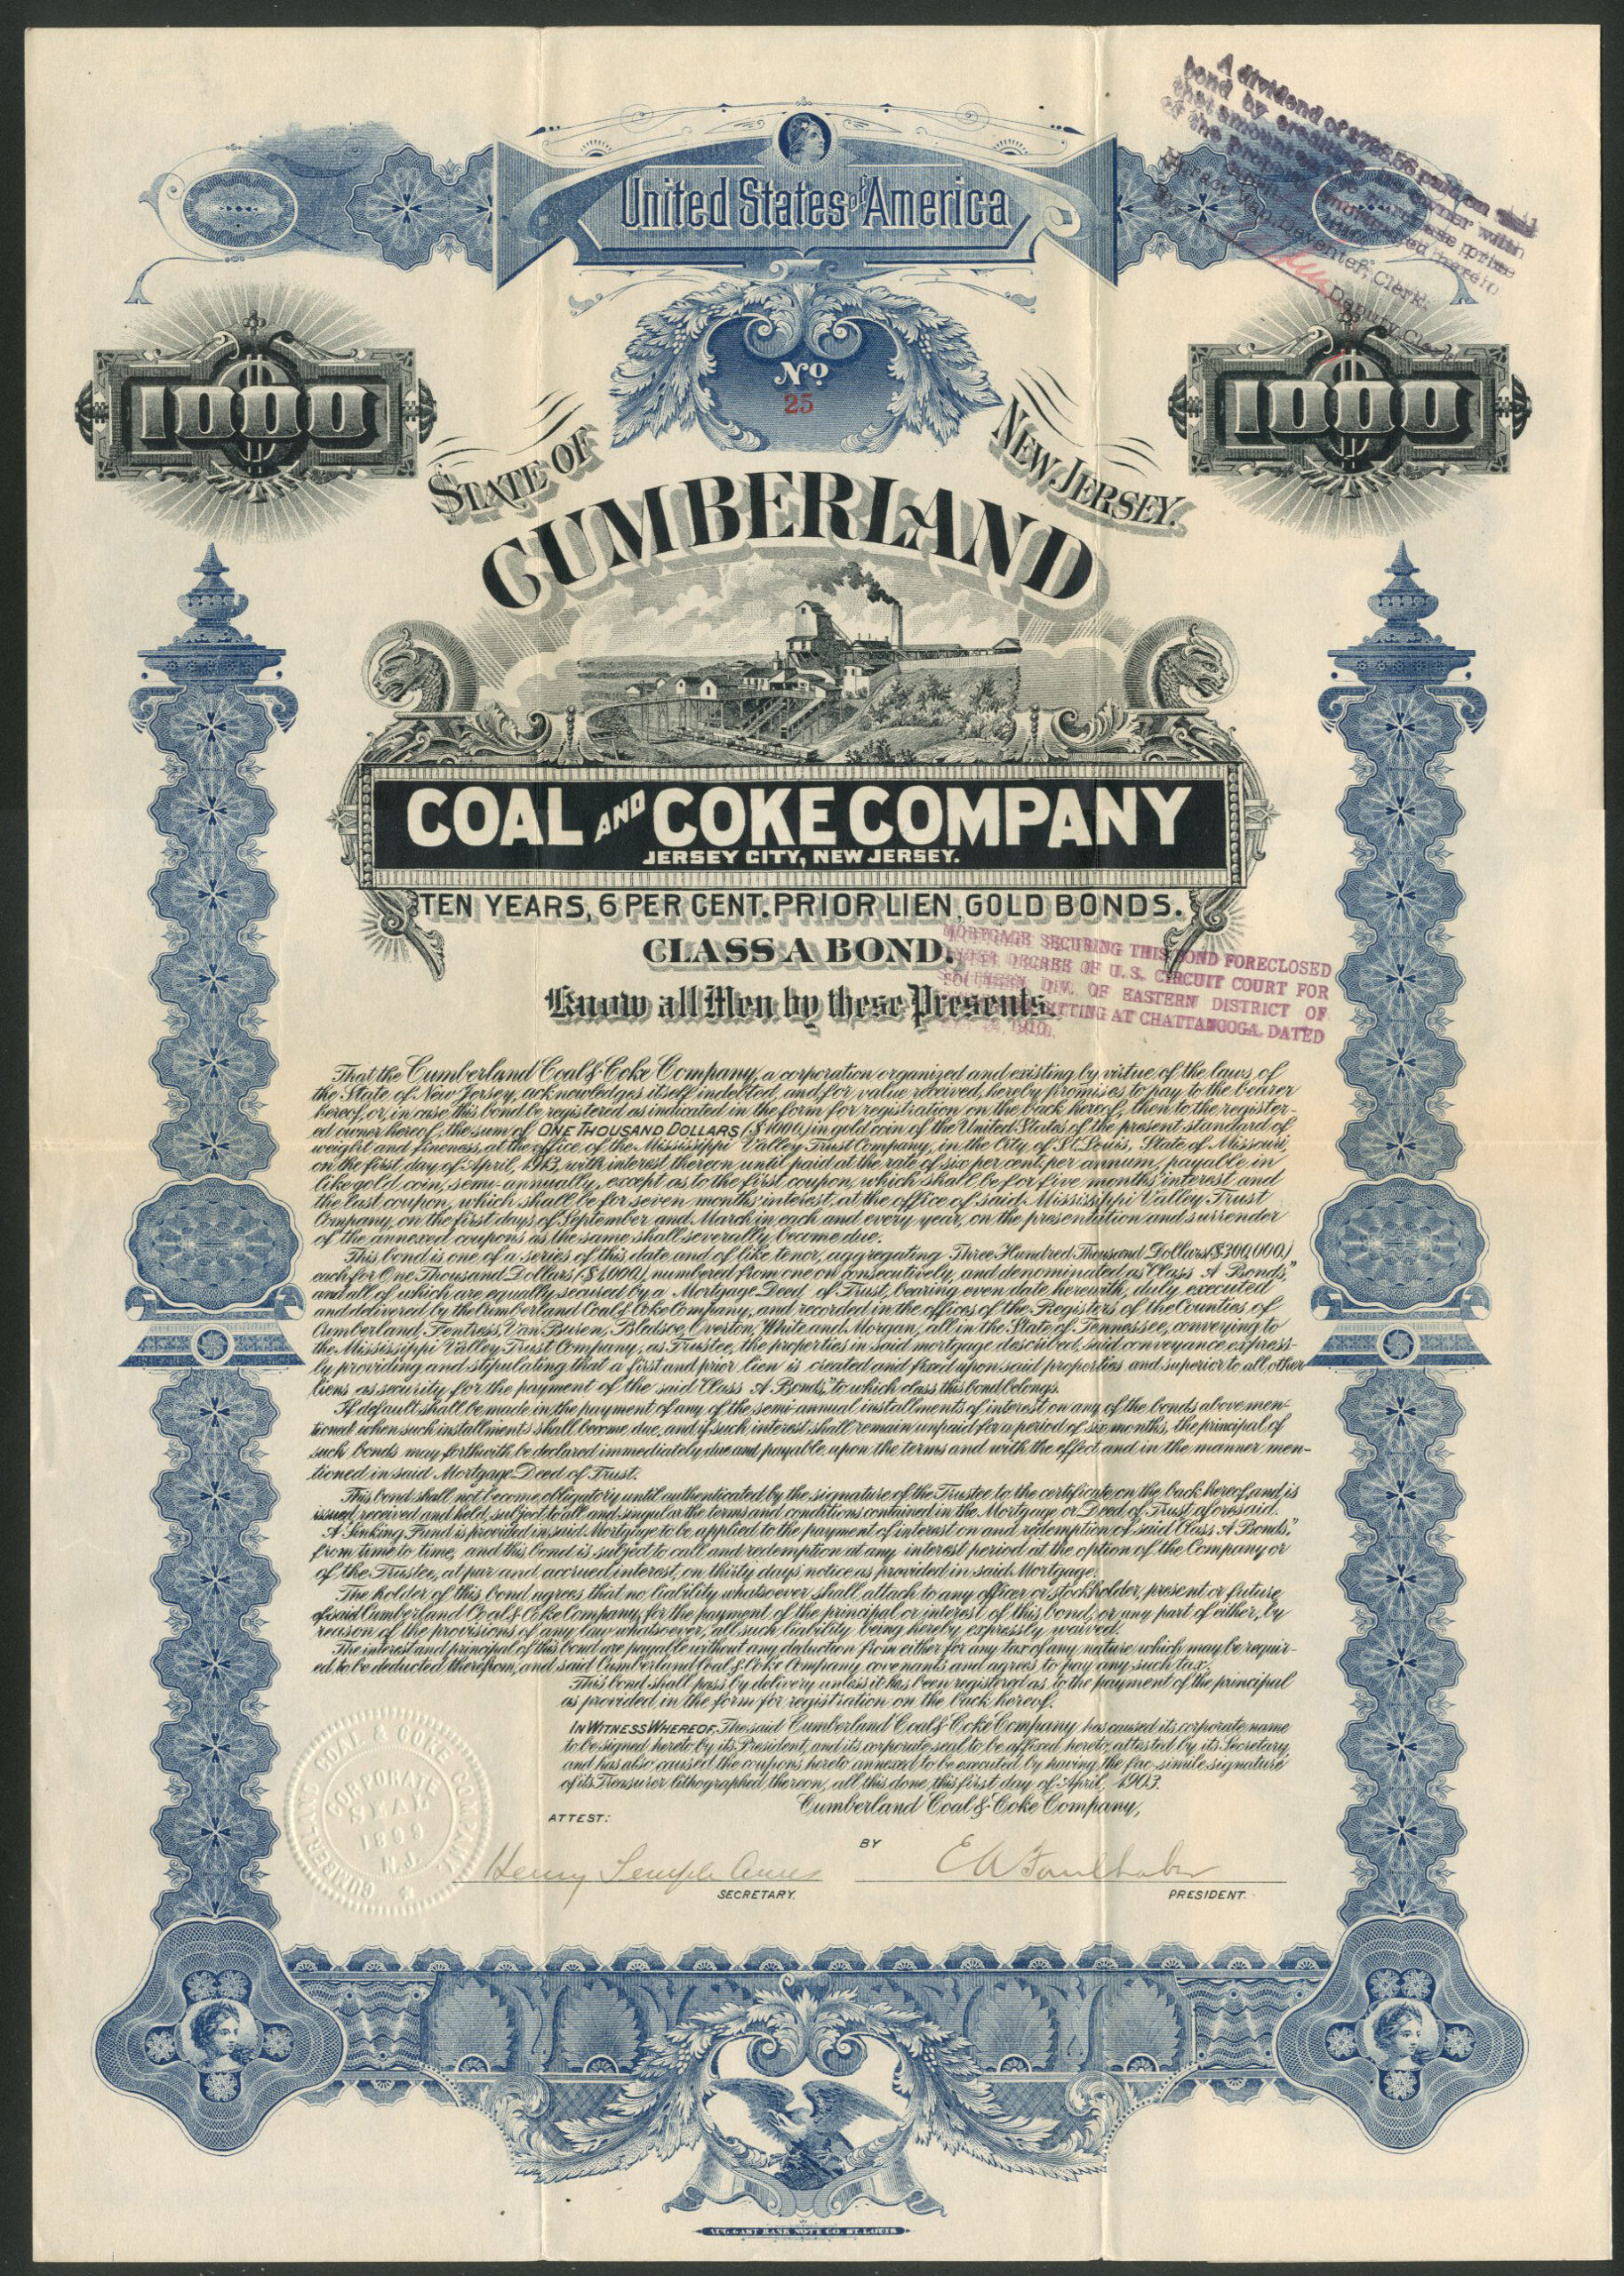 A dividend of $ paid on said
bond by crediting the owner with
that amount on the purchase price
of the property mortgaged herein
Horace Van Deventer, Clerk.
Deputy Clerk
United States of America
No
25
1000
1000
STATE OF
NEW JERSEY.
CUMBERLAND
COAL AND COKE COMPANY
JERSEY CITY, NEW JERSEY.
TEN YEARS, 6 PER CENT. PRIOR LIEN, GOLD BONDS.
CLASS A BOND.
MORTGAGE SECURING THIS BOND FORECLOSED
UNDER DECREE OF U. S. CIRCUIT COURT FOR
SOUTHERN DIV. OF EASTERN DISTRICT OF
SITTING AT CHATTANOOGA DATED
1910.
Know all Men by these Presents.
That the Cumberland Coal & Coke Company, a corporation organized and existing by virtue of the laws of
the State of New Jersey, acknowledges itself indebted, and for value received, hereby promises to pay to the bearer
hereof, or, in case this bond be registered as indicated in the form for registration on the back hereof, then to the register-
ed owner hereof, the sum of ONE THOUSAND DOLLARS ($1000,) in gold coin of the United States, of the present standard of
weight and fineness, at the office of the Mississippi Valley Trust Company, in the City of St. Louis, State of Missouri,
on the first day of April, 1913, with interest thereon until paid at the rate of six per cent. per annum, payable in
like gold coin, semi-annually, except as to the first coupon, which shall be for five months' interest and
the last coupon, which shall be for seven months' interest, at the office of said Mississippi Valley Trust
Company, on the first days of September and March in each and every year, on the presentation and surrender
of the annexed coupons as the same shall severally become due.
This bond is one of a series of this date and of like tenor, aggregating Three Hundred Thousand Dollars ($300,000.)
each for One Thousand Dollars ($1,000), numbered from one on consecutively, and denominated as "Class A Bonds,"
and all of which are equally secured by a Mortgage Deed of Trust, bearing even date herewith, duly executed
and delivered by the Cumberland Coal & Coke Company, and recorded in the offices of the Registers of the Counties of
Cumberland, Fentress, Van Buren, Bledsoe, Overton, White and Morgan, all in the State of Tennessee, conveying to
the Mississippi Valley Trust Company, as Trustee, the properties in said mortgage described, said conveyance express-
ly providing and stipulating that a first and prior lien is created and fixed upon said properties and superior to all other
liens as security for the payment of the said "Class A Bonds," to which class this bond belongs.
If default shall be made in the payment of any of the semi-annual installments of interest on any of the bonds above men-
tioned when such installments shall become due, and if such interest shall remain unpaid for a period of six months, the principal of
such bonds may forthwith be declared immediately due and payable, upon the terms and with the effect, and in the manner men-
tioned in said Mortgage Deed of Trust.
This bond shall not become obligatory until authenticated by the signature of the Trustee to the certificate on the back hereof, and is
issued, received and held, subject to all and singular the terms and conditions contained in the Mortgage or Deed of Trust aforesaid.
A Sinking Fund is provided in said Mortgage to be applied to the payment of interest on and redemption of said "Class A Bonds,"
from time to time, and this bond is subject to call and redemption at any interest period at the option of the Company or
of the Trustee, at par and accrued interest, on thirty days notice as provided in said Mortgage.
The holder of this bond agrees that no liability whatsoever shall attach to any officer or stockholder, present or future,
of said Cumberland Coal & Coke Company, for the payment of the principal or interest of this bond, or any part of either, by
reason of the provisions of any law whatsoever, all such liability being hereby expressly waived.
The interest and principal of this bond are payable without any deduction from either for any tax of any nature which may be requir-
ed to be deducted therefrom, and said Cumberland Coal & Coke Company covenants and agrees to pay any such tax.
This bond shall pass by delivery unless it has been registered as to the payment of the principal
as provided in the form for registration on the back hereof.
IN WITNESS WHEREOF, The said Cumberland Coal & Coke Company, has caused its corporate name
to be signed hereto by its President, and its corporate seal, to be affixed hereto, attested by its Secretary,
and has also caused the coupons hereto annexed to be executed by having the fac-simile signature
of its Treasurer lithographed thereon, all this done, this first day of April, 1903.
Cumberland Coal & Coke Company,
ATTEST:
BY
Henry Semple Ames
E A Faulhaber
SECRETARY.
PRESIDENT.
CUMBERLAND COAL & COKE COMPANY
CORPORATE
SEAL
1899
N.J.
AUG. GAST BANK NOTE CO. ST. LOUIS